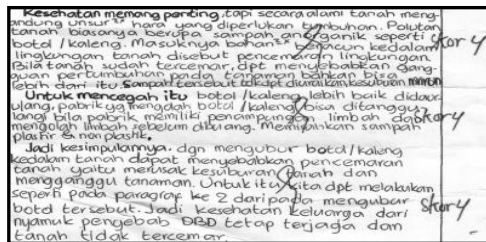 Kesehatan memang penting, tapi secara alami tanah meng-
andung unsur²² hara yang diperlukan tumbuhan. Polutan
tanah biasanya berupa sampah anorganik seperti
botol /kaleng. Masuknya bahan²² beracun kedalam
lingkungan tanah disebut pencemaran lingkungan.
Bila tanah sudah tercemar, dpt menyebabkan gang-
guan pertumbuhan pada tanaman bahkan bisa
lebih dari itu. Sampah tersebut tdk dpt diuraikan kesuburan
Untuk mencegah itu botol /kaleng lebih baik didaur
ulang, pabrik yg mengolah botol /kaleng bisa ditanggu
langi bila pabrik memiliki penampungan limbah dan
mengolah limbah sebelum dibuang. Memisahkan sampah
plastik & non plastik.
Jadi kesimpulannya, dgn mengubur botol/kaleng
kedalam tanah dapat menyebabkan pencemaran
tanah yaitu merusak kesuburan tanah dan
mengganggu tanaman. Untuk itu kita dpt melakukan
seperti pada paragraf ke 2 daripada mengubur
botol tersebut. Jadi kesehatan keluarga dari
nyamuk penyebab DBD tetap terjaga dan
tanah tidak tercemar.
Skor 4
Skor 4
Skor 4